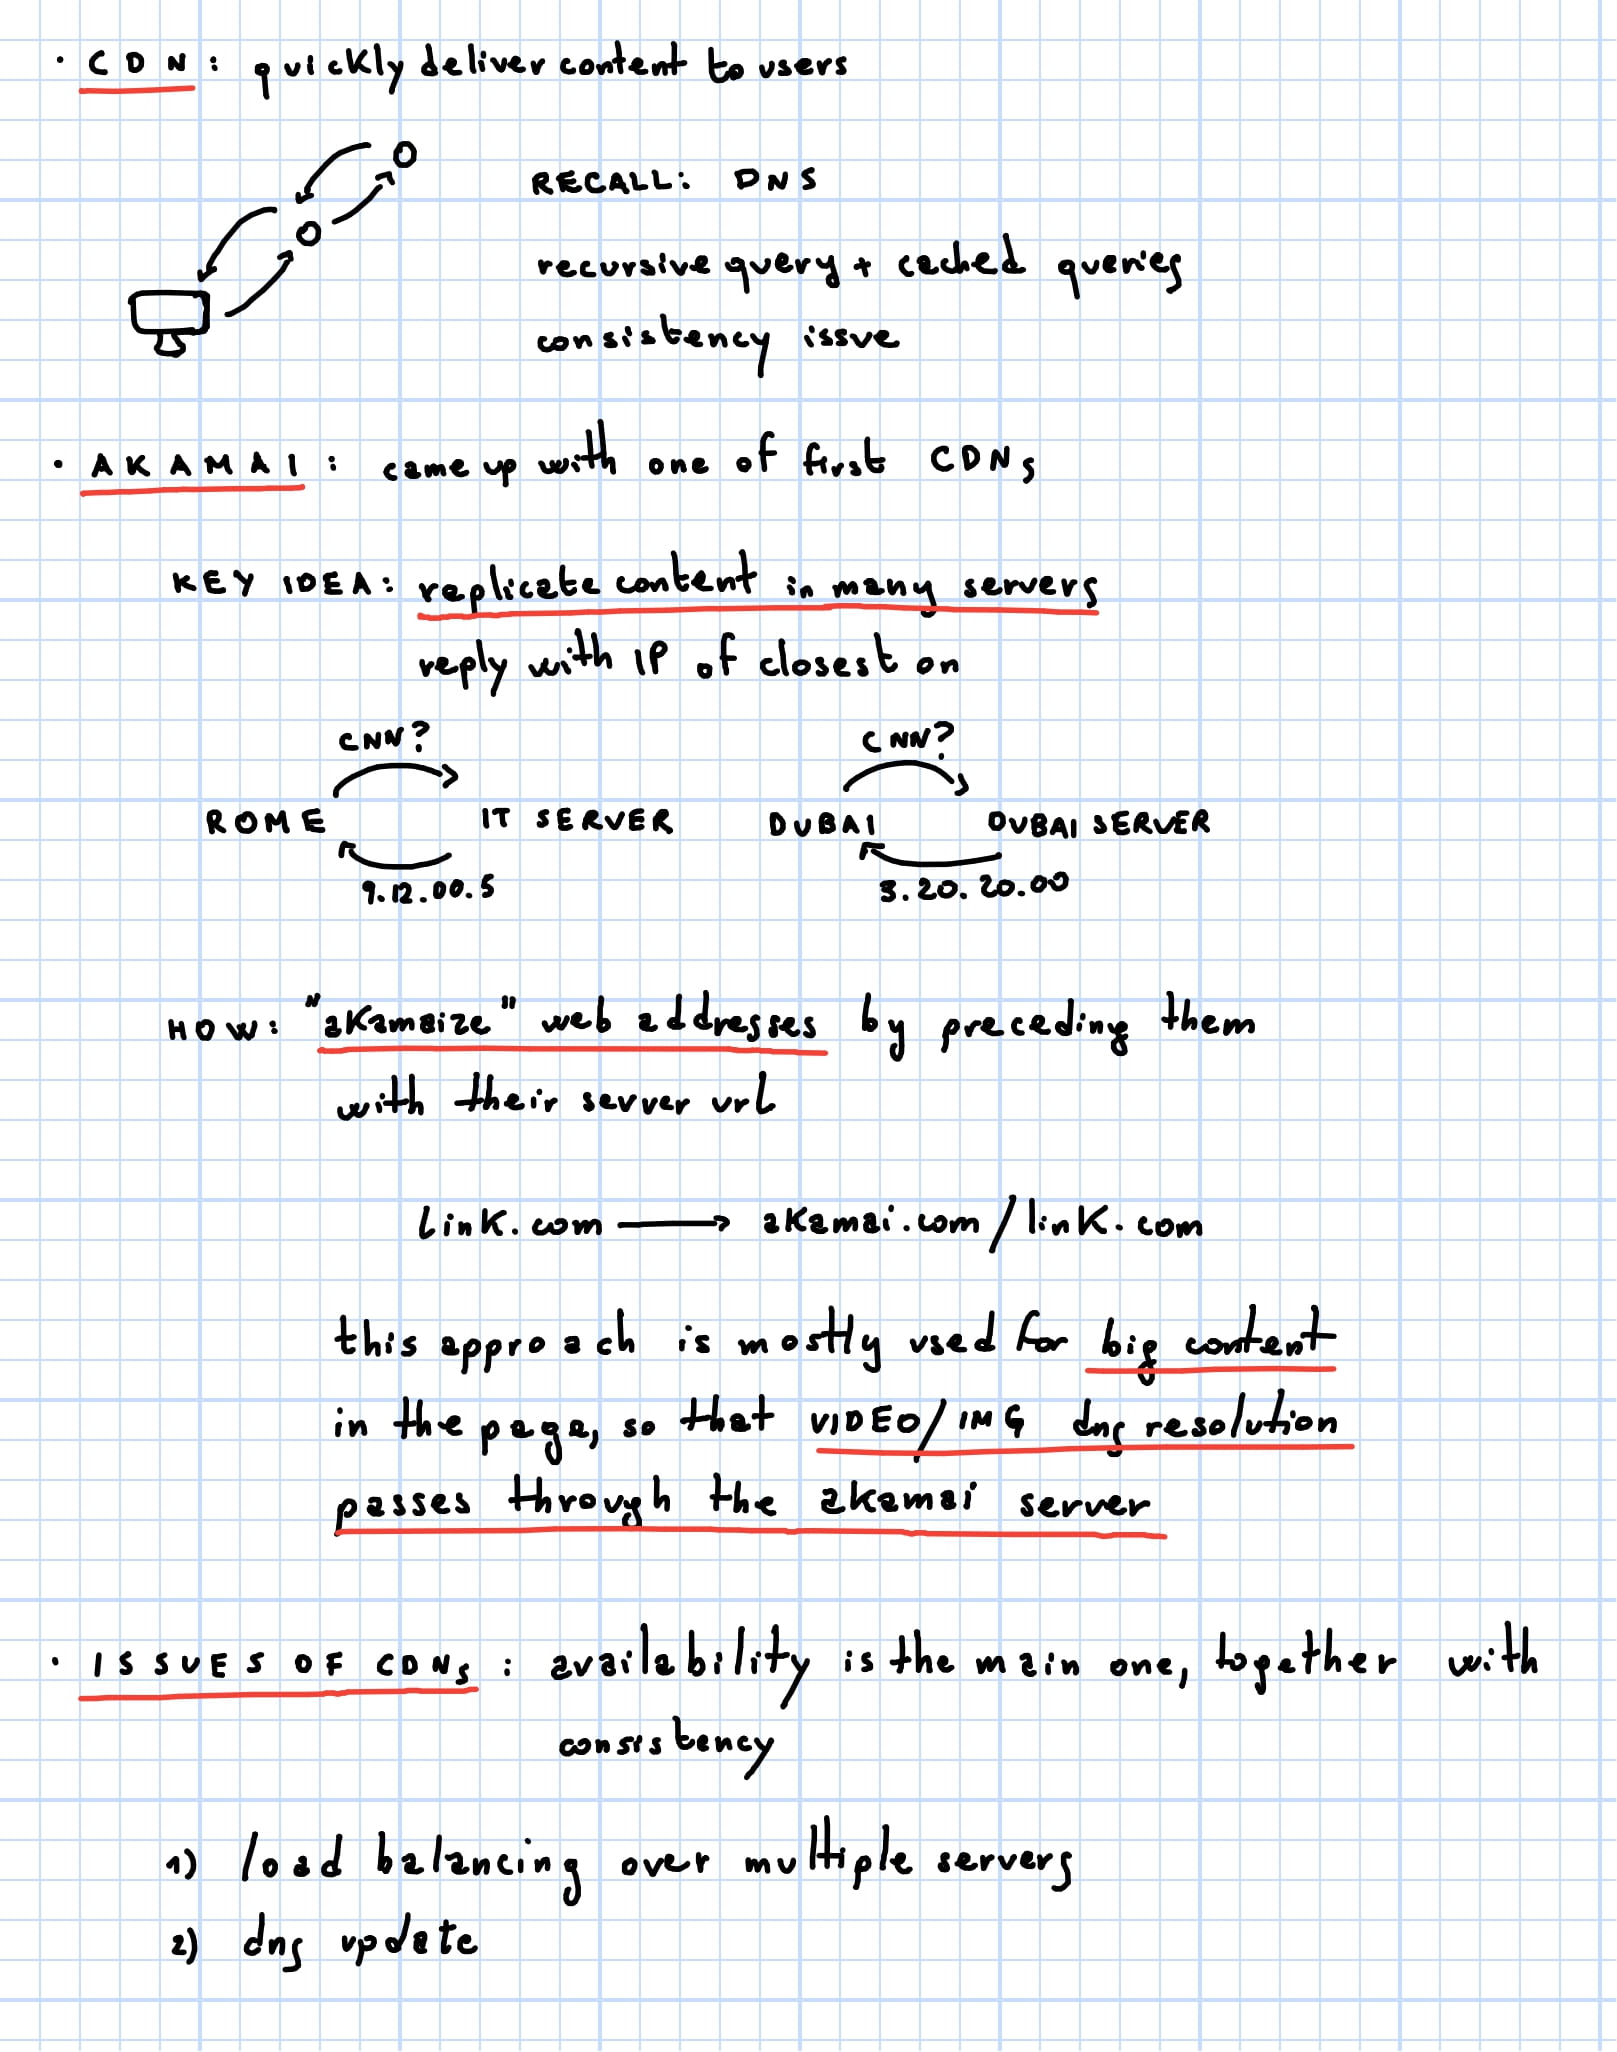 · CDN: quickly deliver content to users
RECALL: DNS
recursive query + cached queries
consistency issue
· AKAMAI: came up with one of first CDNs
KEY IDEA: replicate content in many servers
reply with IP of closest on
CNN? CNN?
ROME IT SERVER DUBAI DUBAI SERVER
9.12.00.5 3.20.20.00
HOW: "akamaize" web addresses by preceding them
with their server url
link.com → akamai.com/link.com
this approach is mostly used for big content
in the page, so that VIDEO/IMG dns resolution
passes through the akamai server
· ISSUES OF CDNs: availability is the main one, together with
consistency
1) load balancing over multiple servers
2) dns update